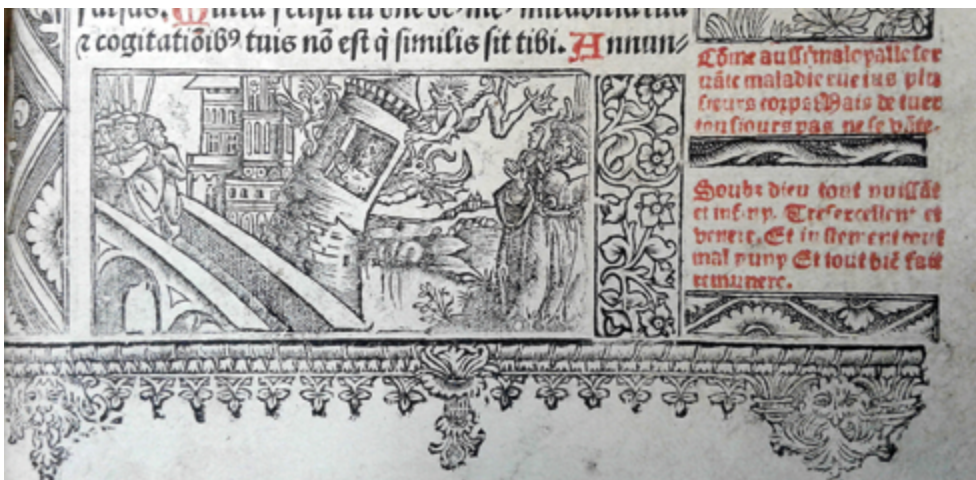 falsas. Multa fecisti tu dñe de⁹ me⁹ mirabilia tua
⁊ cogitatiõib⁹ tuis nõ est q̇ similis sit tibi. Annun⸗
Cõme aussi malo palle ser
uãte maladie rue ius plu
sieurs corps Mais de tuer
tousiours pas ne se vãte.
Soubz dieu tout puissãt
et infiny. Tresexcellent et
venere. Et iustement tout
mal puny Et tout biẽ fait
remunere.